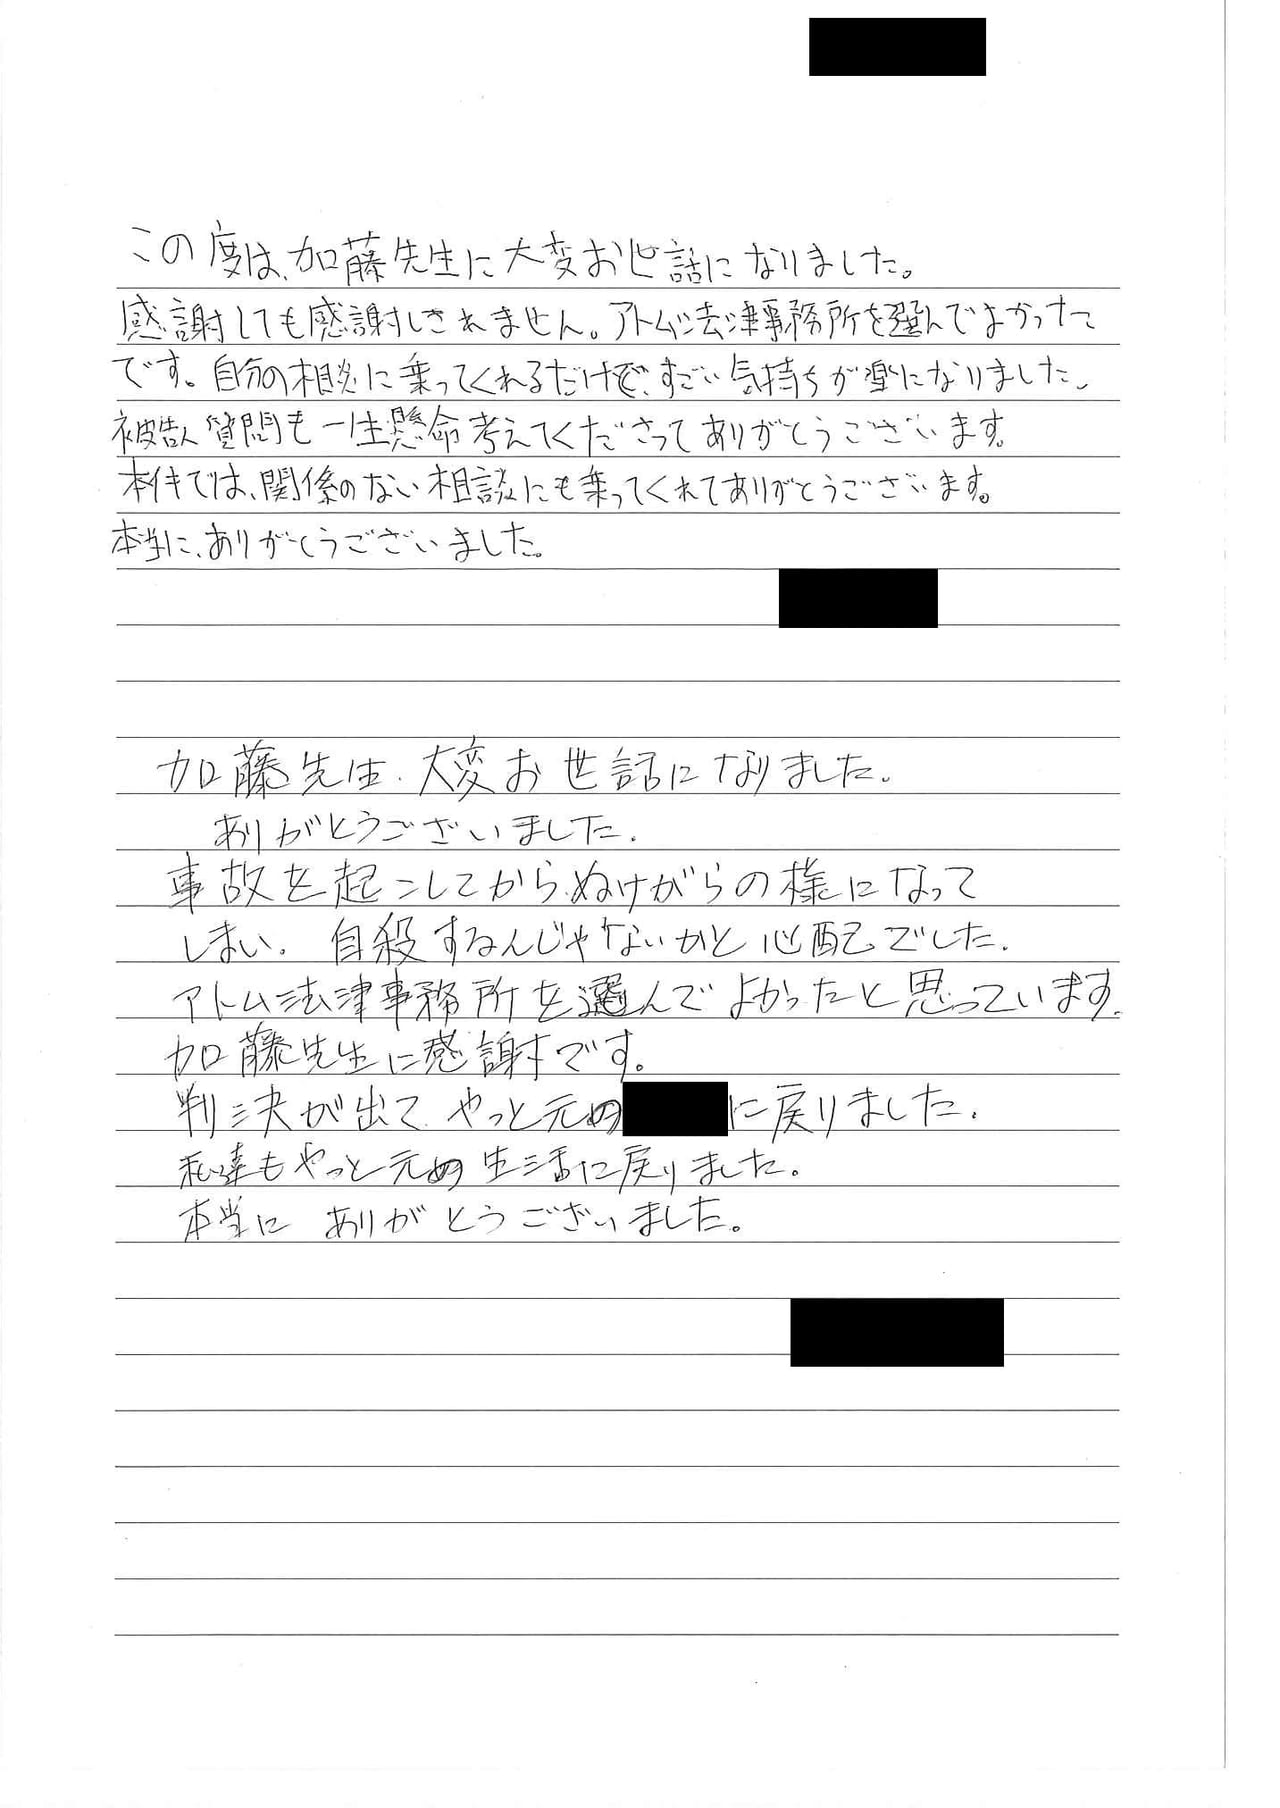 この度は、加藤先生に大変お世話になりました。
感謝しても感謝しきれません。アトム法律事務所を選んでよかった
です。自分の相談に乗ってくれるだけで、すごい気持ちが楽になりました。
被告人質問も一生懸命考えてくださってありがとうございます。
本件では、関係のない相談にも乗ってくれてありがとうございます。
本当に、ありがとうございました。
加藤先生、大変お世話になりました。
ありがとうございました。
事故を起こしてから、ぬけがらの様になって
しまい、自殺するんじゃないかと心配でした。
アトム法律事務所を選んでよかったと思っています。
加藤先生に感謝です。
判決が出て、やっと元の
に戻りました。
私達もやっと元の生活に戻りました。
本当に ありがとうございました。